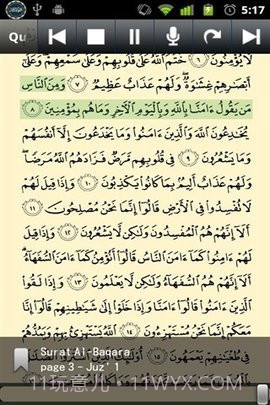 5:17
Qu
لَا يُؤْمِنُونَ ٦ خَتَمَ اللَّهُ عَلَىٰ قُلُوبِهِمْ وَعَلَىٰ سَمْعِهِمْ وَعَلَىٰ
أَبْصَارِهِمْ غِشَاوَةٌ وَلَهُمْ عَذَابٌ عَظِيمٌ ٧ وَمِنَ النَّاسِ
مَن يَقُولُ آمَنَّا بِاللَّهِ وَبِالْيَوْمِ الْآخِرِ وَمَا هُم بِمُؤْمِنِينَ ٨
يُخَادِعُونَ اللَّهَ وَالَّذِينَ آمَنُوا وَمَا يَخْدَعُونَ إِلَّا أَنفُسَهُمْ
وَمَا يَشْعُرُونَ ٩ فِي قُلُوبِهِم مَّرَضٌ فَزَادَهُمُ اللَّهُ مَرَضًا
وَلَهُمْ عَذَابٌ أَلِيمٌ بِمَا كَانُوا يَكْذِبُونَ ١٠ وَإِذَا قِيلَ لَهُمْ
لَا تُفْسِدُوا فِي الْأَرْضِ قَالُوا إِنَّمَا نَحْنُ مُصْلِحُونَ ١١
أَلَا إِنَّهُمْ هُمُ الْمُفْسِدُونَ وَلَٰكِن لَّا يَشْعُرُونَ ١٢ وَإِذَا قِيلَ
لَهُمْ آمِنُوا كَمَا آمَنَ النَّاسُ قَالُوا أَنُؤْمِنُ كَمَا آمَنَ السُّفَهَاءُ أَلَا
إِنَّهُمْ هُمُ السُّفَهَاءُ وَلَٰكِن لَّا يَعْلَمُونَ ١٣ وَإِذَا لَقُوا
الَّذِينَ آمَنُوا قَالُوا آمَنَّا وَإِذَا خَلَوْا إِلَىٰ شَيَاطِينِهِمْ قَالُوا إِنَّا
مَعَكُمْ إِنَّمَا نَحْنُ مُسْتَهْزِئُونَ ١٤ اللَّهُ يَسْتَهْزِئُ بِهِمْ وَيَمُدُّهُمْ
فِي طُغْيَانِهِمْ يَعْمَهُونَ ١٥
Surat Al-Baqara
page 3 - Juz' 1
11玩意儿·11WYX.COM